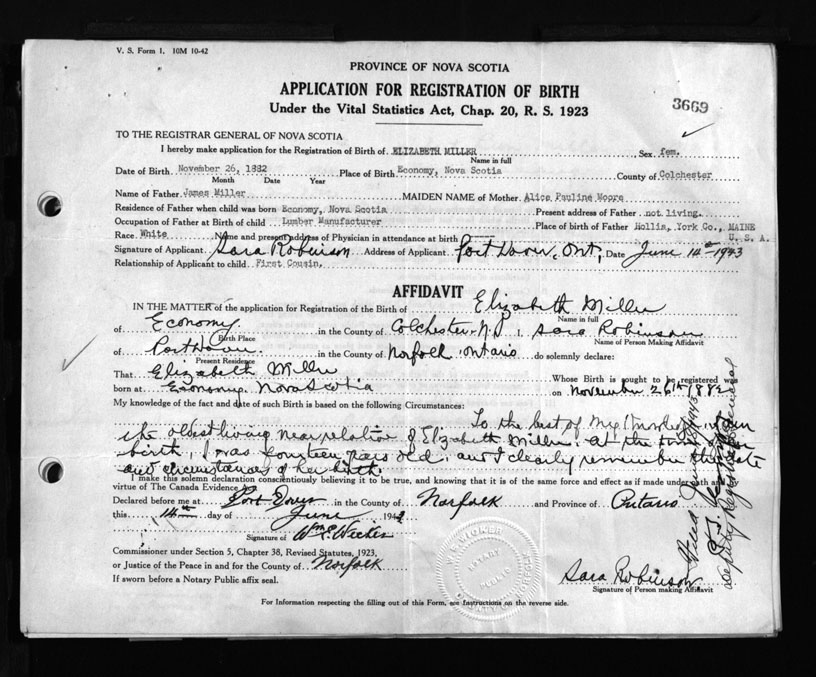 V. S. Form 1. 10M 10-42
PROVINCE OF NOVA SCOTIA
APPLICATION FOR REGISTRATION OF BIRTH
Under the Vital Statistics Act, Chap. 20, R. S. 1923
3669
TO THE REGISTRAR GENERAL OF NOVA SCOTIA
I hereby make application for the Registration of Birth of ELIZABETH MILLER Sex fem.
Name in full
Date of Birth November 26, 1882 Place of Birth Economy, Nova Scotia County of Colchester
Month Date Year
Name of Father James Miller MAIDEN NAME of Mother Alice Pauline Moore
Residence of Father when child was born Economy, Nova Scotia Present address of Father not living.
Occupation of Father at Birth of child Lumber Manufacturer Place of birth of Father Hollis, York Co., MAINE
Race White Name and present address of Physician in attendance at birth U. S. A.
Signature of Applicant Sara Robinson Address of Applicant Port Dover, Ont; Date June 14th 1943
Relationship of Applicant to child First Cousin.
AFFIDAVIT
IN THE MATTER of the application for Registration of the Birth of Elizabeth Miller
Name in full
of Economy in the County of Colchester N.S, Sara Robinson
Birth Place Name of Person Making Affidavit
of Port Dover in the County of Norfolk, Ontario do solemnly declare:
Present Residence
That Elizabeth Miller Whose Birth is sought to be registered was
born at Economy Nova Scotia on November 26th 1882
My knowledge of the fact and date of such Birth is based on the following Circumstances:
To the best of my knowledge, I am
the oldest living near relative of Elizabeth Miller. At the time of her
birth, I was fourteen years old, and I clearly remember the date
and circumstances of her birth.
I make this solemn declaration conscientiously believing it to be true, and knowing that it is of the same force and effect as if made under oath and by
virtue of The Canada Evidence Act.
Declared before me at Port Dover in the County of Norfolk and Province of Ontario
this 14th day of June 194
Signature of Wm E. Wicker
Commissioner under Section 5, Chapter 38, Revised Statutes, 1923,
or Justice of the Peace in and for the County of Norfolk
If sworn before a Notary Public affix seal.
Sara Robinson
Signature of Person making Affidavit
For Information respecting the filling out of this Form, see Instructions on the reverse side.
NOTARY
PUBLIC
Deputy Registrar General